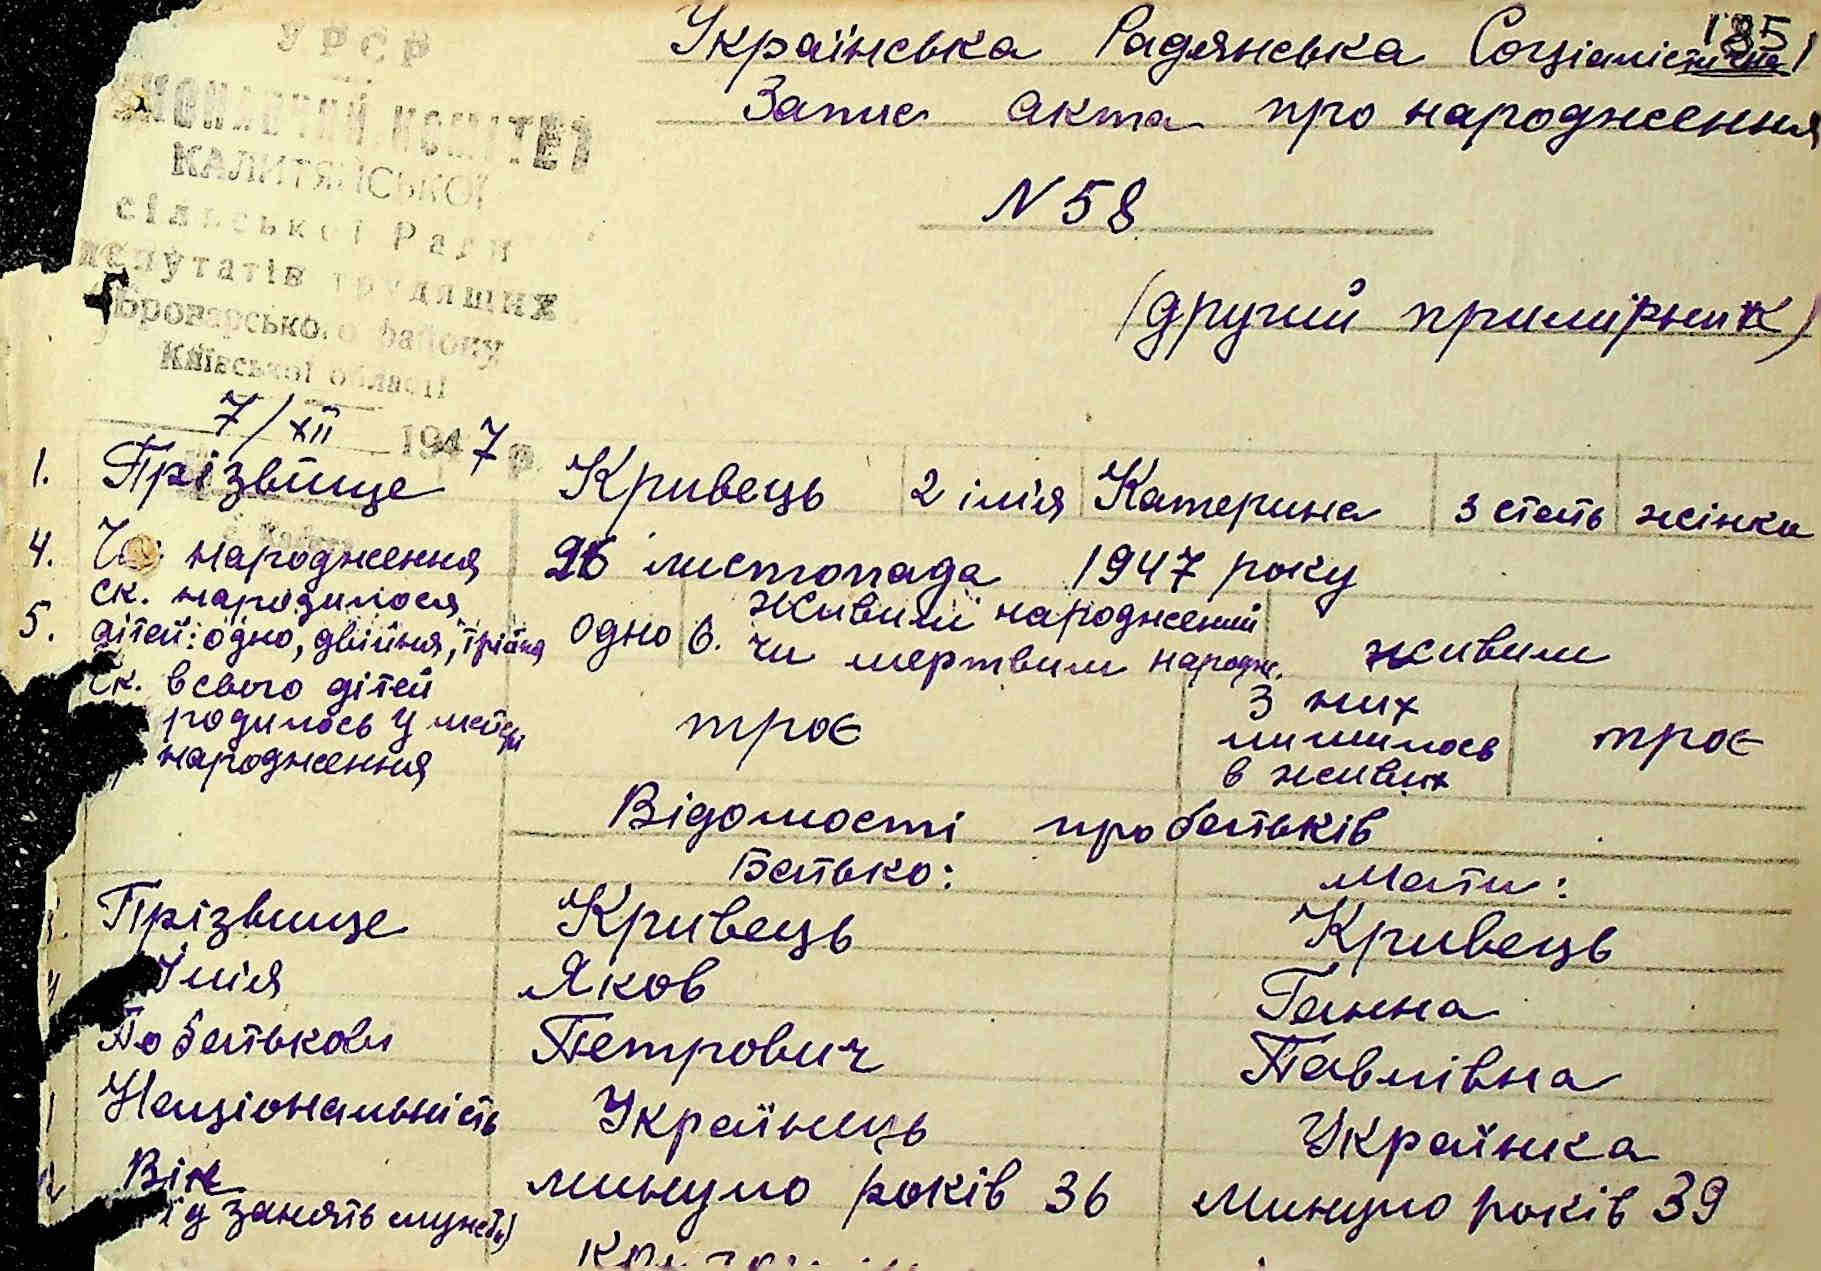 УРСР
КОМІТЕТ
КАЛИТЯНСЬКОЇ
сільської Ради
депутатів трудящих
Броварського району
Київської області
7/XII 1947 р.
185
Українська Радянська Соціалістична
Запис акта про народження
N 58
(другий примірник)
1. Прізвище Кривець 2 імія Катерина 3 стать жінка
4. народження 26 листопада 1947 року
5. ск. народилося дітей: одно, двійня, трійня одно 6. Живим народжений чи мертвим народж. живим
ск. всього дітей родилось у матері народження троє З них лишилось в живих троє
Відомості про батьків
Батько: Мати:
Прізвище Кривець Кривець
Імія Яков Ганна
По батькови Петрович Павлівна
Національність Українець Українка
Вік минуло років 36 минуло років 39
занять